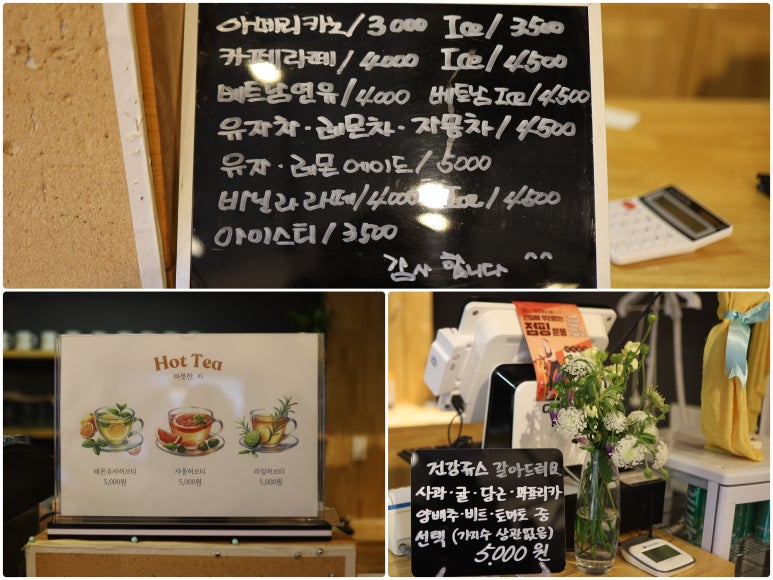 아메리카노/3000 Ice/3500
카페라떼/4000 Ice/4500
베트남연유/4000 베트남Ice/4500
유자차·레몬차·자몽차/4500
유자·레몬에이드/5000
바닐라라떼/4000 Ice/4500
아이스티/3500
감사합니다 ^^
Hot Tea
따뜻한, 차
레몬유자허브티
5,000원
자몽허브티
5,000원
라임허브티
5,000원
점핑
운동
건강쥬스 갈아드려요
사과·귤·당근·파프리카
양배추·비트·토마토 중
선택 (가지수 상관없음)
5,000원